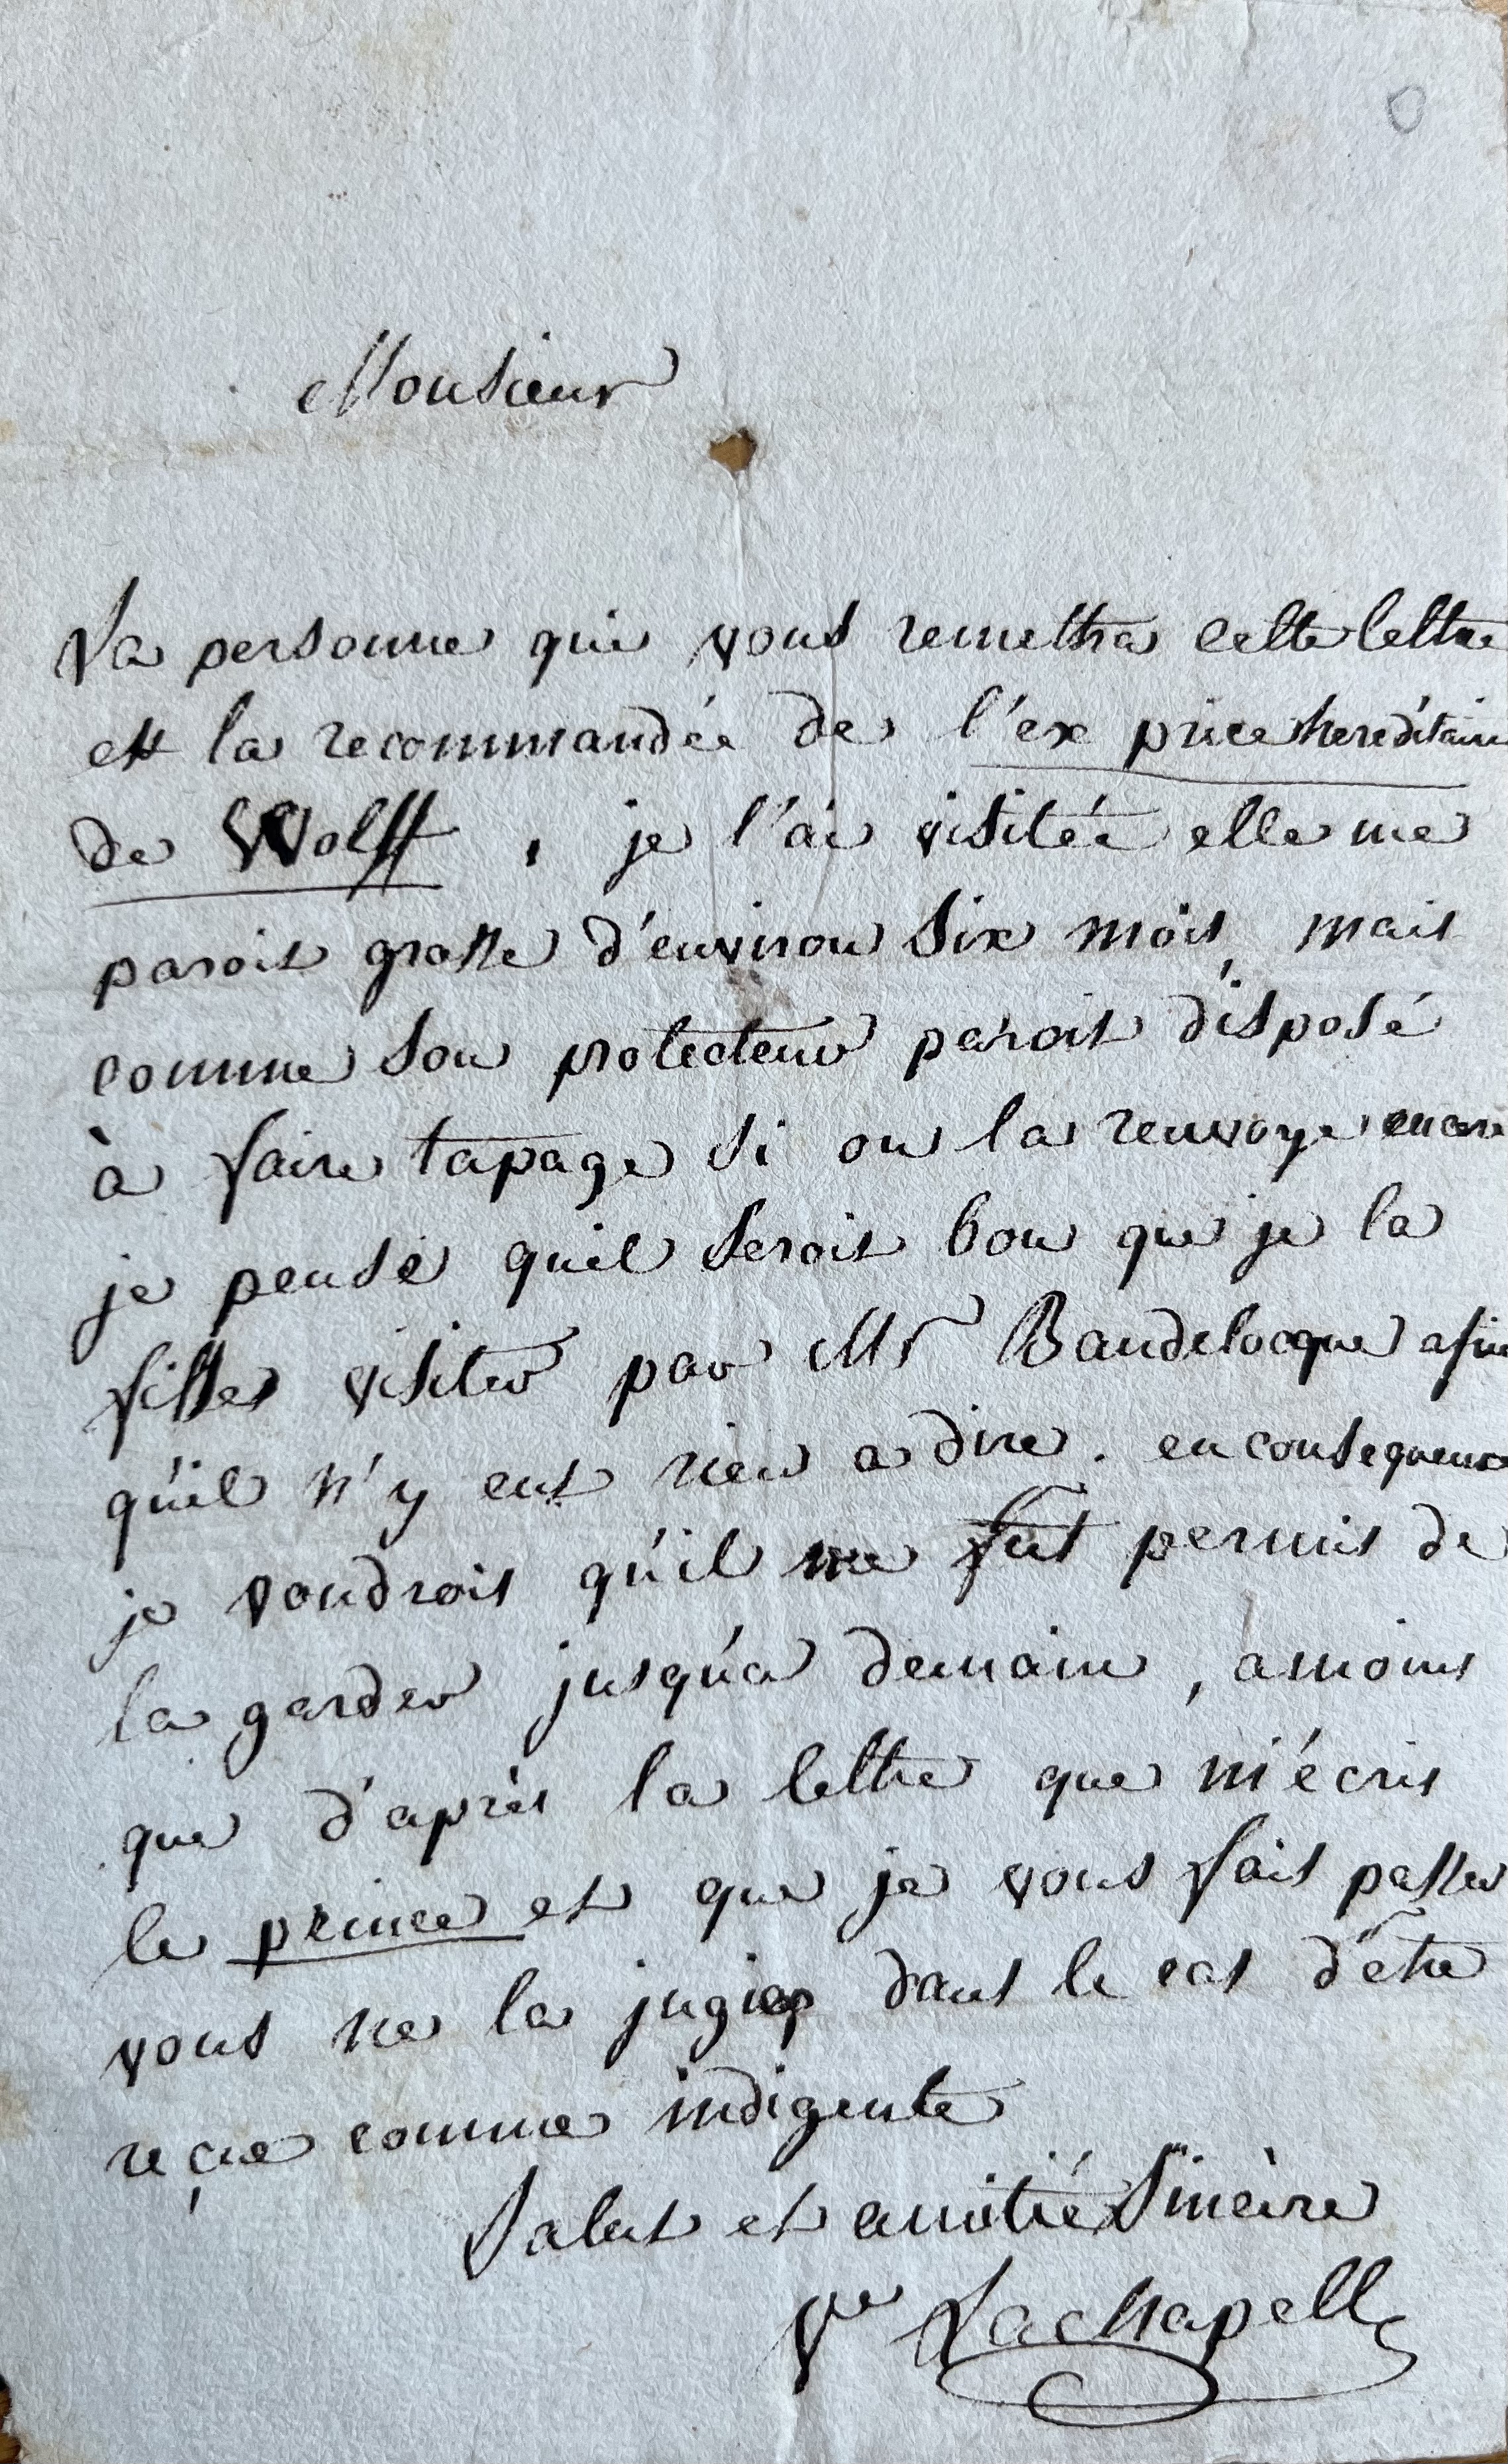 Monsieur
La personne qui vous remettra cette lettre
est la recommandée de l'ex price hereditaire
de Wolff, je l'ai visitée elle me
paroit grosse d'environ six mois, mais
comme son protecteur paroit disposé
à faire tapage si on la renvoye encore
je pense quil seroit bon que je la
fisse visiter par Mr Baudelocque afin
qu'il n'y eut rien a dire. en consequence
je voudrois qu'il me fut permis de
la garder jusqu'a demain, amoins
que d'après la lettre que m'écris
le prince et que je vous fais passer
vous ne la jugiez dans le cas d'être
reçue comme indigente
Salut et amitié Sincère
Ve Lachapelle